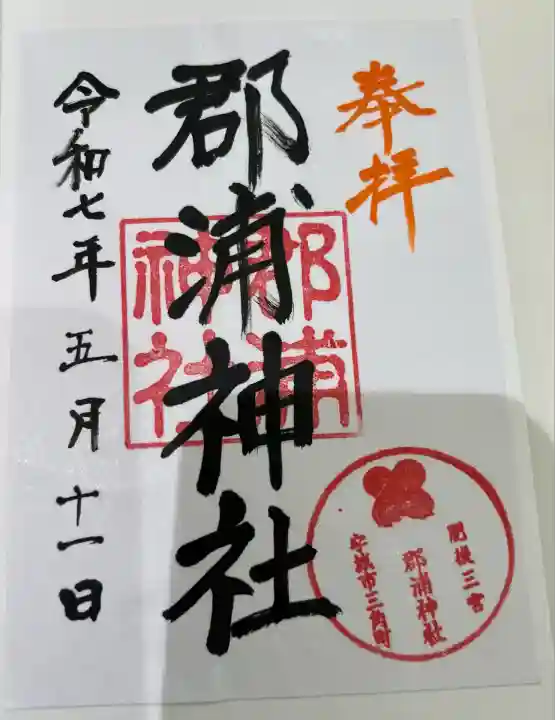 奉拝
郡浦神社
郡浦
神社
肥後三宮
郡浦神社
宇城市三角町
令和七年五月十一日